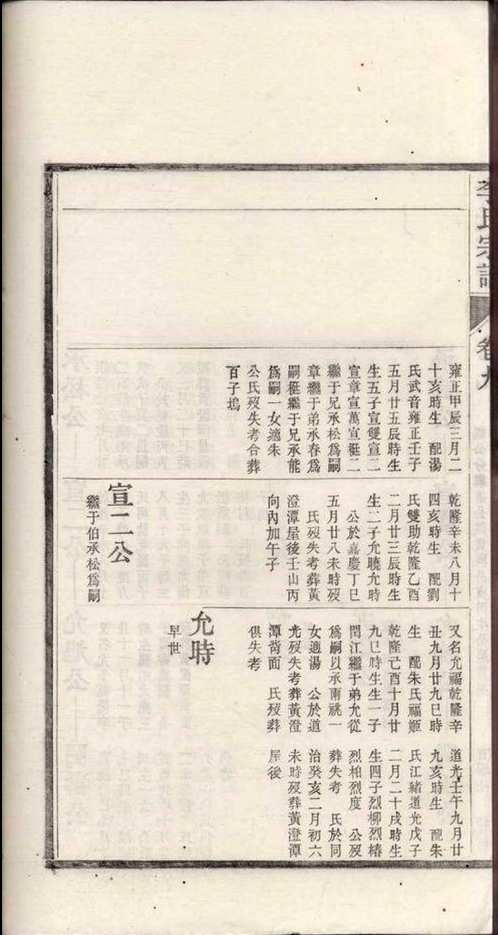 李氏宗譜
卷九
雍正甲辰三月二
十亥時生 配湯
氏武音雍正壬子
五月廿五辰時生
生五子宣雙宣二
宣章宣萬宣梃二
繼于兄承松為嗣
章繼于弟承春為
嗣梃繼于兄承能
為嗣一女適朱
公氏歿失考合葬
百子塢
乾隆辛未八月十
四亥時生 配劉
氏雙助乾隆乙酉
二月廿三辰時生
生二子允曉允時
公於嘉慶丁巳
五月廿八未時歿
氏歿失考葬黃
澄潭屋後壬山丙
向內加午子
宣二公
繼于伯承松為嗣
又名允福乾隆辛
丑九月廿九巳時
生 配朱氏福姬
乾隆己酉十月廿
九巳時生生一子
閏江繼于弟允從
為嗣以承兩祧一
女適湯 公於道
光歿失考葬黃澄
潭背面 氏歿葬
俱失考
允時
早世
道光壬午九月廿
九亥時生 配朱
氏江緒道光戊子
二月二十戌時生
生四子烈柳烈椿
烈柏烈度 公歿
葬失考 氏於同
治癸亥二月初六
未時歿葬黃澄潭
屋後